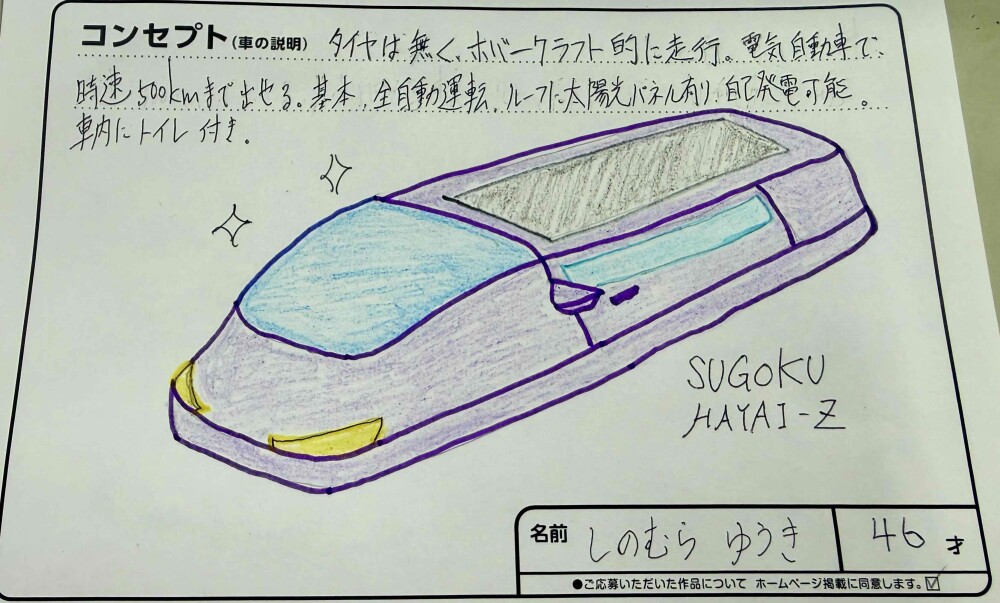 コンセプト(車の説明) タイヤは無く、ホバークラフト的に走行。電気自動車で、
時速500kmまで出せる。基本、全自動運転。ルーフに太陽光パネル有り、自己発電可能。
車内にトイレ付き。
SUGOKU
HAYAI-Z
名前 しのむら ゆうき 46 才
●ご応募いただいた作品について ホームページ掲載に同意します。☑